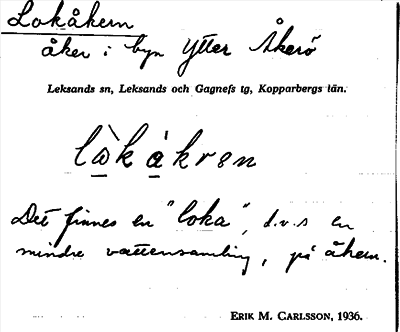 Lokåkern
åker i byn Ytter Åkerö
Leksands sn, Leksands och Gagnefs tg, Kopparbergs län.
lò̱k å̱kren
Det finnes en "loka", d.v.s en
mindre vattensamling, på åkern.
ERIK M. CARLSSON, 1936.